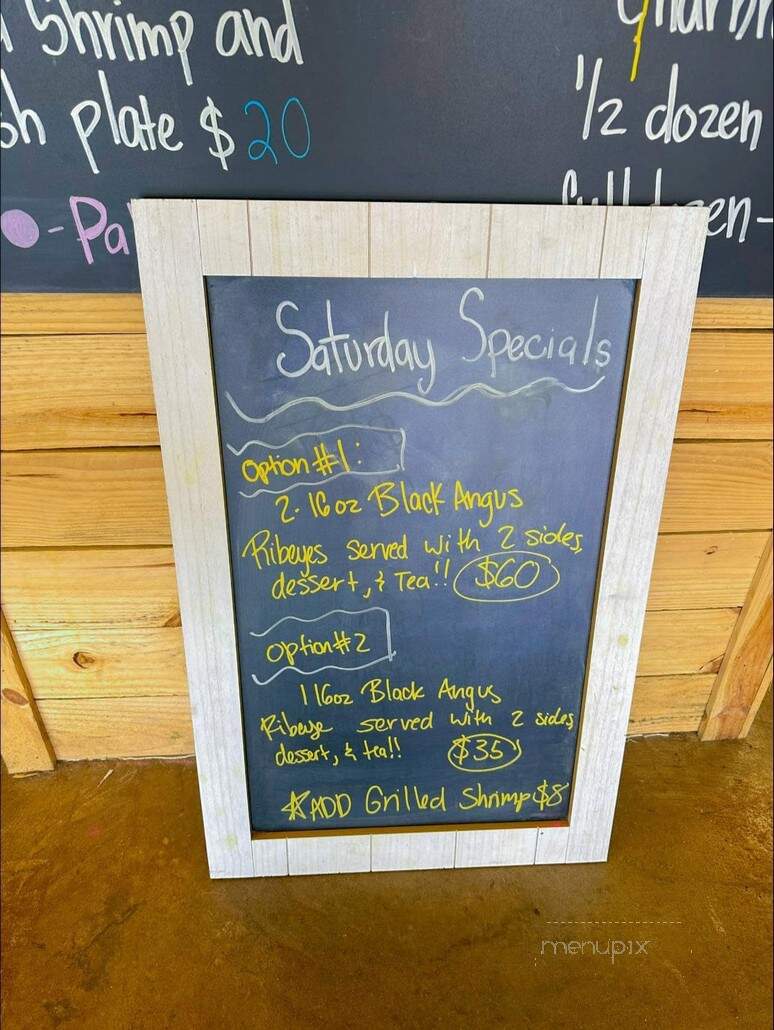 Shrimp and
plate $20
1/2 dozen
Saturday Specials
Option #1:
2-16oz Black Angus
Ribeyes served with 2 sides,
dessert, & Tea!! $60
Option #2
1 16oz Black Angus
Ribeye served with 2 sides,
dessert, & tea!! $35
☆ADD Grilled Shrimp $8
menupix